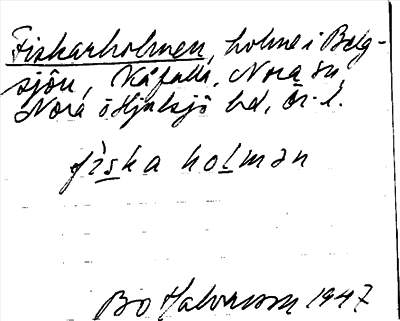 Fiskarholmen, holme i Bälg-
sjön, Kåfalla, Nora sn,
Nora o Hjulsjö hd, Ör. l.
fìska holman
Bo Halvarsson 1947